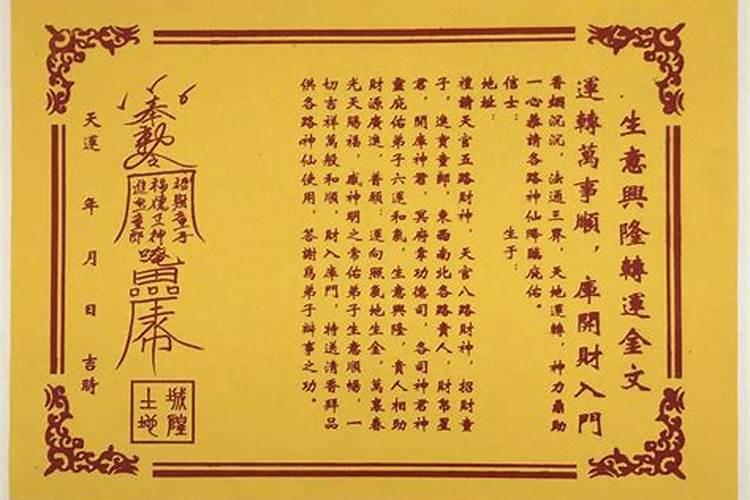 生意興隆轉運金文
運轉萬事順，庫開財入門
香烟沉沉，法通三界，天地運轉，神力鼎助
一心恭請各路神仙降臨庇佑。
信士：　　生于：
地址：
禮請天官五路財神，天官八路財神，招財童
子，進寶童郎，東西南北各路貴人，財帛星
君，開庫神君，冥府掌功德司，各司神君神
靈庇佑弟子六運和氣，生意興隆，貴人相助
財源廣進，普願：運向照氣地生金，萬衰春
光天賜福，感神明之常佑弟子生意順暢，一
切吉祥萬般和順，財入庫門，特送清香拜品
供各路神仙使用，答謝爲弟子辦事之功。
奉勅令
招財童子
福德正神
進寶童郎
城隍
土地
天運　年　月　日　吉時